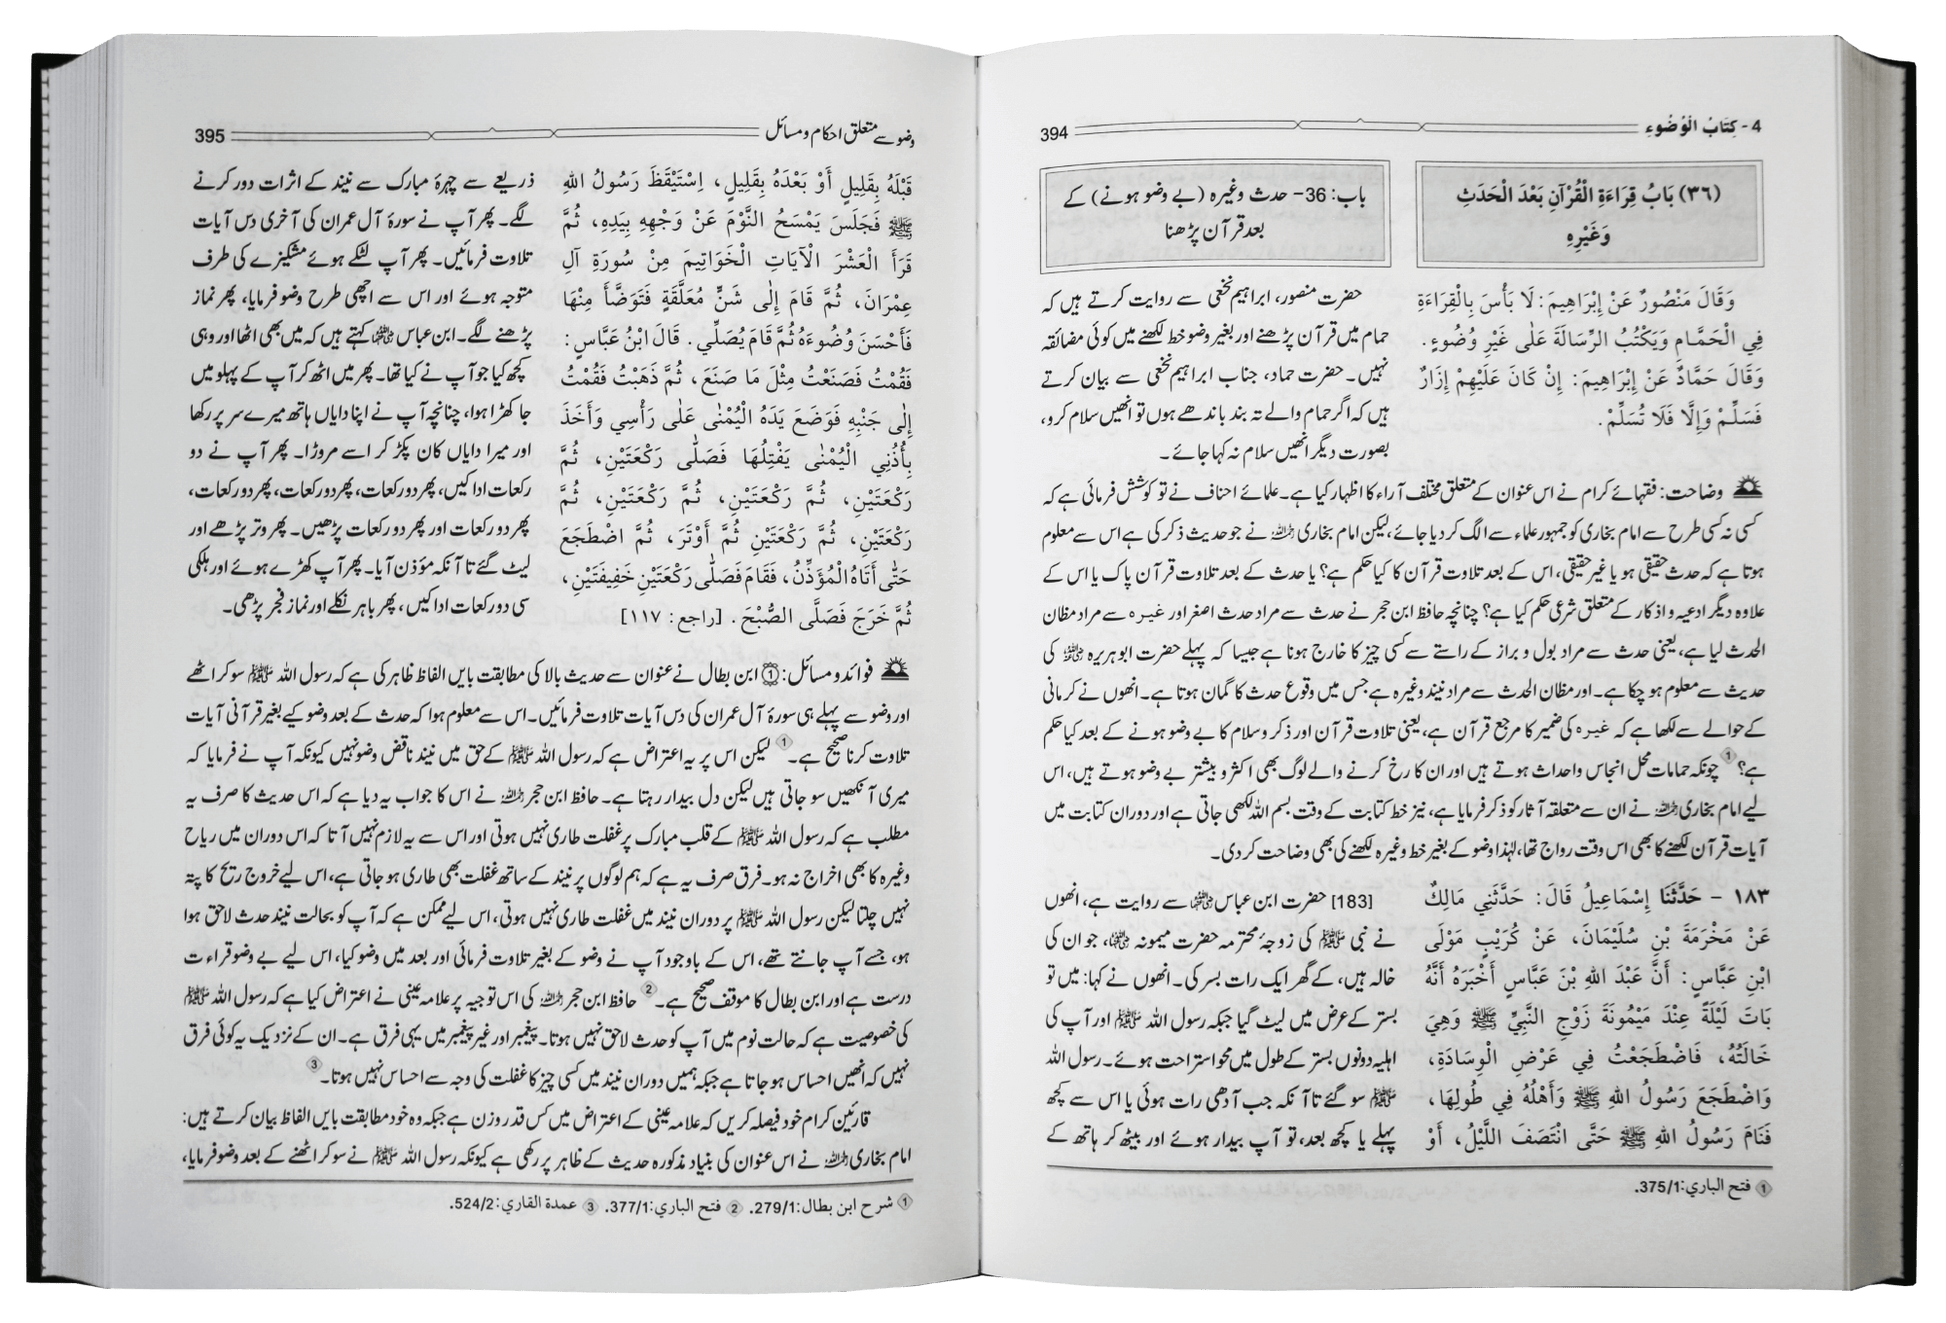 4 - كِتَابُ الْوُضُوءِ
394
(٣٦) بَابُ قِرَاءَةِ الْقُرْآنِ بَعْدَ الْحَدَثِ
وَغَيْرِهِ
باب: 36- حدث وغیرہ (بے وضو ہونے) کے
بعد قرآن پڑھنا
وَقَالَ مَنْصُورٌ عَنْ إِبْرَاهِيمَ: لَا بَأْسَ بِالْقِرَاءَةِ
فِي الْحَمَّامِ وَيَكْتُبُ الرِّسَالَةَ عَلٰى غَيْرِ وُضُوءٍ.
وَقَالَ حَمَّادٌ عَنْ إِبْرَاهِيمَ: إِنْ كَانَ عَلَيْهِمْ إِزَارٌ
فَسَلِّمْ وَإِلَّا فَلَا تُسَلِّمْ.
حضرت منصور، ابراہیم نخعی سے روایت کرتے ہیں کہ
حمام میں قرآن پڑھنے اور بغیر وضو خط لکھنے میں کوئی مضائقہ
نہیں۔ حضرت حماد، جناب ابراہیم نخعی سے بیان کرتے
ہیں کہ اگر حمام والے تہ بند باندھے ہوں تو انھیں سلام کرو،
بصورت دیگر انھیں سلام نہ کہا جائے۔
وضاحت: فقہائے کرام نے اس عنوان کے متعلق مختلف آراء کا اظہار کیا ہے۔ علمائے احناف نے تو کوشش فرمائی ہے کہ
کسی نہ کسی طرح سے امام بخاری کو جمہور علماء سے الگ کر دیا جائے، لیکن امام بخاری رحمہ اللہ نے جو حدیث ذکر کی ہے اس سے معلوم
ہوتا ہے کہ حدث حقیقی ہو یا غیر حقیقی، اس کے بعد تلاوت قرآن کا کیا حکم ہے؟ یا حدث کے بعد تلاوت قرآن پاک یا اس کے
علاوہ دیگر ادعیہ و اذکار کے متعلق شرعی حکم کیا ہے؟ چنانچہ حافظ ابن حجر نے حدث سے مراد حدث اصغر اور غیرہ سے مراد مظان
الحدث لیا ہے، یعنی حدث سے مراد بول و براز کے راستے سے کسی چیز کا خارج ہونا ہے جیسا کہ پہلے حضرت ابوہریرہ رضی اللہ عنہ کی
حدیث سے معلوم ہو چکا ہے۔ اور مظان الحدث سے مراد نیند وغیرہ ہے جس میں وقوع حدث کا گمان ہوتا ہے۔ انھوں نے کرمانی
کے حوالے سے لکھا ہے کہ غیرہ کی ضمیر کا مرجع قرآن ہے، یعنی تلاوت قرآن اور ذکر و سلام کا بے وضو ہونے کے بعد کیا حکم
ہے؟ 1 چونکہ حمامات محل انجاس و احداث ہوتے ہیں اور ان کا رخ کرنے والے لوگ بھی اکثر و بیشتر بے وضو ہوتے ہیں، اس
لیے امام بخاری رحمہ اللہ نے ان سے متعلقہ آثار کو ذکر فرمایا ہے، نیز خط کتابت کے وقت بسم اللہ لکھی جاتی ہے اور دوران کتابت میں
آیات قرآن لکھنے کا بھی اس وقت رواج تھا، لہٰذا وضو کے بغیر خط وغیرہ لکھنے کی بھی وضاحت کر دی۔
١٨٣ - حَدَّثَنَا إِسْمَاعِيلُ قَالَ: حَدَّثَنِي مَالِكٌ
عَنْ مَخْرَمَةَ بْنِ سُلَيْمَانَ، عَنْ كُرَيْبٍ مَوْلَى
ابْنِ عَبَّاسٍ: أَنَّ عَبْدَ اللهِ بْنَ عَبَّاسٍ أَخْبَرَهُ أَنَّهُ
بَاتَ لَيْلَةً عِنْدَ مَيْمُونَةَ زَوْجِ النَّبِيِّ ﷺ وَهِيَ
خَالَتُهُ، فَاضْطَجَعْتُ فِي عَرْضِ الْوِسَادَةِ،
وَاضْطَجَعَ رَسُولُ اللهِ ﷺ وَأَهْلُهُ فِي طُولِهَا،
فَنَامَ رَسُولُ اللهِ ﷺ حَتَّى انْتَصَفَ اللَّيْلُ، أَوْ
[183] حضرت ابن عباس رضی اللہ عنہما سے روایت ہے، انھوں
نے نبی ﷺ کی زوجۂ محترمہ حضرت میمونہ رضی اللہ عنہا، جو ان کی
خالہ ہیں، کے گھر ایک رات بسر کی۔ انھوں نے کہا: میں تو
بستر کے عرض میں لیٹ گیا جبکہ رسول اللہ ﷺ اور آپ کی
اہلیہ دونوں بستر کے طول میں محو استراحت ہوئے۔ رسول اللہ
ﷺ سو گئے تا آنکہ جب آدھی رات ہوئی یا اس سے کچھ
پہلے یا کچھ بعد، تو آپ بیدار ہوئے اور بیٹھ کر ہاتھ کے
1 فتح الباري:375/1.
وضو سے متعلق احکام و مسائل
395
قَبْلَهُ بِقَلِيلٍ أَوْ بَعْدَهُ بِقَلِيلٍ، اِسْتَيْقَظَ رَسُولُ اللهِ
ﷺ فَجَلَسَ يَمْسَحُ النَّوْمَ عَنْ وَجْهِهِ بِيَدِهِ، ثُمَّ
قَرَأَ الْعَشْرَ الْآيَاتِ الْخَوَاتِيمَ مِنْ سُورَةِ آلِ
عِمْرَانَ، ثُمَّ قَامَ إِلٰى شَنٍّ مُعَلَّقَةٍ فَتَوَضَّأَ مِنْهَا
فَأَحْسَنَ وُضُوءَهُ ثُمَّ قَامَ يُصَلِّي. قَالَ ابْنُ عَبَّاسٍ:
فَقُمْتُ فَصَنَعْتُ مِثْلَ مَا صَنَعَ، ثُمَّ ذَهَبْتُ فَقُمْتُ
إِلٰى جَنْبِهِ فَوَضَعَ يَدَهُ الْيُمْنٰى عَلٰى رَأْسِي وَأَخَذَ
بِأُذُنِي الْيُمْنٰى يَفْتِلُهَا فَصَلّٰى رَكْعَتَيْنِ، ثُمَّ
رَكْعَتَيْنِ، ثُمَّ رَكْعَتَيْنِ، ثُمَّ رَكْعَتَيْنِ، ثُمَّ
رَكْعَتَيْنِ، ثُمَّ رَكْعَتَيْنِ ثُمَّ أَوْتَرَ، ثُمَّ اضْطَجَعَ
حَتّٰى أَتَاهُ الْمُؤَذِّنُ، فَقَامَ فَصَلّٰى رَكْعَتَيْنِ خَفِيفَتَيْنِ،
ثُمَّ خَرَجَ فَصَلَّى الصُّبْحَ. [راجع: ١١٧]
ذریعے سے چہرۂ مبارک سے نیند کے اثرات دور کرنے
لگے۔ پھر آپ نے سورۂ آل عمران کی آخری دس آیات
تلاوت فرمائیں۔ پھر آپ لٹکے ہوئے مشکیزے کی طرف
متوجہ ہوئے اور اس سے اچھی طرح وضو فرمایا، پھر نماز
پڑھنے لگے۔ ابن عباس رضی اللہ عنہما کہتے ہیں کہ میں بھی اٹھا اور وہی
کچھ کیا جو آپ نے کیا تھا۔ پھر میں اٹھ کر آپ کے پہلو میں
جا کھڑا ہوا، چنانچہ آپ نے اپنا دایاں ہاتھ میرے سر پر رکھا
اور میرا دایاں کان پکڑ کر اسے مروڑا۔ پھر آپ نے دو
رکعات ادا کیں، پھر دو رکعات، پھر دو رکعات، پھر دو رکعات،
پھر دو رکعات اور پھر دو رکعات پڑھیں۔ پھر وتر پڑھے اور
لیٹ گئے تا آنکہ مؤذن آیا۔ پھر آپ کھڑے ہوئے اور ہلکی
سی دو رکعات ادا کیں، پھر باہر نکلے اور نماز فجر پڑھی۔
فوائد و مسائل: 1 ابن بطال نے عنوان سے حدیث بالا کی مطابقت بایں الفاظ ظاہر کی ہے کہ رسول اللہ ﷺ سو کر اٹھے
اور وضو سے پہلے ہی سورۂ آل عمران کی دس آیات تلاوت فرمائیں۔ اس سے معلوم ہوا کہ حدث کے بعد وضو کیے بغیر قرآنی آیات
تلاوت کرنا صحیح ہے۔ 1 لیکن اس پر یہ اعتراض ہے کہ رسول اللہ ﷺ کے حق میں نیند ناقض وضو نہیں کیونکہ آپ نے فرمایا کہ
میری آنکھیں سو جاتی ہیں لیکن دل بیدار رہتا ہے۔ حافظ ابن حجر رحمہ اللہ نے اس کا جواب یہ دیا ہے کہ اس حدیث کا صرف یہ
مطلب ہے کہ رسول اللہ ﷺ کے قلب مبارک پر غفلت طاری نہیں ہوتی اور اس سے یہ لازم نہیں آتا کہ اس دوران میں ریاح
وغیرہ کا بھی اخراج نہ ہو۔ فرق صرف یہ ہے کہ ہم لوگوں پر نیند کے ساتھ غفلت بھی طاری ہو جاتی ہے، اس لیے خروج ریح کا پتہ
نہیں چلتا لیکن رسول اللہ ﷺ پر دوران نیند میں غفلت طاری نہیں ہوتی، اس لیے ممکن ہے کہ آپ کو بحالت نیند حدث لاحق ہوا
ہو، جسے آپ جانتے تھے، اس کے باوجود آپ نے وضو کے بغیر تلاوت فرمائی اور بعد میں وضو کیا، اس لیے بے وضو قراءت
درست ہے اور ابن بطال کا موقف صحیح ہے۔ 2 حافظ ابن حجر رحمہ اللہ کی اس توجیہ پر علامہ عینی نے اعتراض کیا ہے کہ رسول اللہ ﷺ
کی خصوصیت ہے کہ حالت نوم میں آپ کو حدث لاحق نہیں ہوتا۔ پیغمبر اور غیر پیغمبر میں یہی فرق ہے۔ ان کے نزدیک یہ کوئی فرق
نہیں کہ انھیں احساس ہو جاتا ہے جبکہ ہمیں دوران نیند میں کسی چیز کا غفلت کی وجہ سے احساس نہیں ہوتا۔ 3
قارئین کرام خود فیصلہ کریں کہ علامہ عینی کے اعتراض میں کس قدر وزن ہے جبکہ وہ خود مطابقت بایں الفاظ بیان کرتے ہیں:
امام بخاری رحمہ اللہ نے اس عنوان کی بنیاد مذکورہ حدیث کے ظاہر پر رکھی ہے کیونکہ رسول اللہ ﷺ نے سو کر اٹھنے کے بعد وضو فرمایا،
1 شرح ابن بطال:279/1. 2 فتح الباري:377/1. 3 عمدة القاري:524/2.